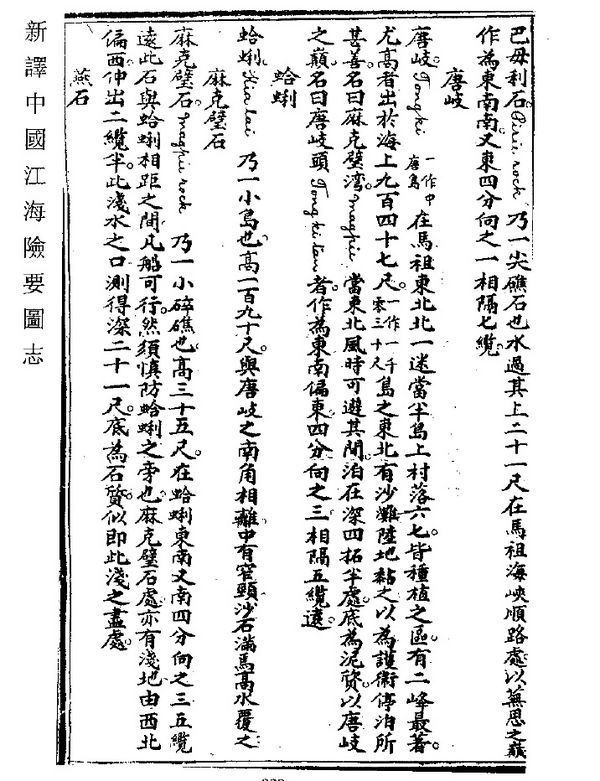 巴毋利石。Pirie rock 乃一尖礁石也水過其上二十一尺在馬祖海峽順路處以無恩之巔
作為東南南。又東四分向之一相隔七纜。
唐岐
唐岐。Tong ki 一作中唐島 在馬祖東北北一迷當半島上村落六七。皆種植之區。有二峰最著。
尤高者出於海上九百四十七尺。一作一千零三十尺 島之東北有沙灘陸地黏之以為護衛停泊所
甚善。名曰麻克壁灣。maghii 當東北風時可避其間。泊在深四拓半處。底為泥質。以唐岐
之巔名曰唐岐頭 Tong ki tau 者。作為東南偏東四分向之三相隔五纜遠。
蛤蜊
蛤蜊。Kia lai 乃一小島也。高一百九十尺。與唐岐之南角相離。中有窄頸沙石滿焉高水覆之
麻克壁石
麻克壁石。maghii rock 乃一小碎礁也。高三十五尺。在蛤蜊東南又南四分向之三五纜
遠此石與蛤蜊相距之間凡船可行。然須慎防蛤蜊之旁也。麻克壁石處亦有淺地。由西北
偏西伸出二纜半此淺水之口測得深二十一尺。底為石質。似即此淺之盡處。
燕石
新譯中國江海險要圖志